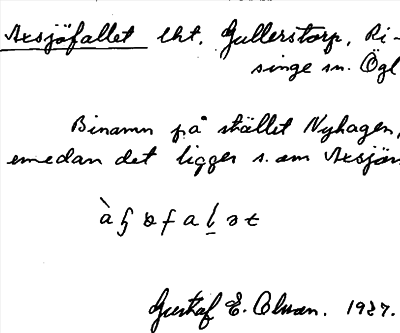 Axsjöfallet lht. Gullerstorp, Ri-
singe sn. Ögl
Binamn på stället Nyhagen,
emedan det ligger s. om Axsjön
Gustaf E. Olsson. 1927.